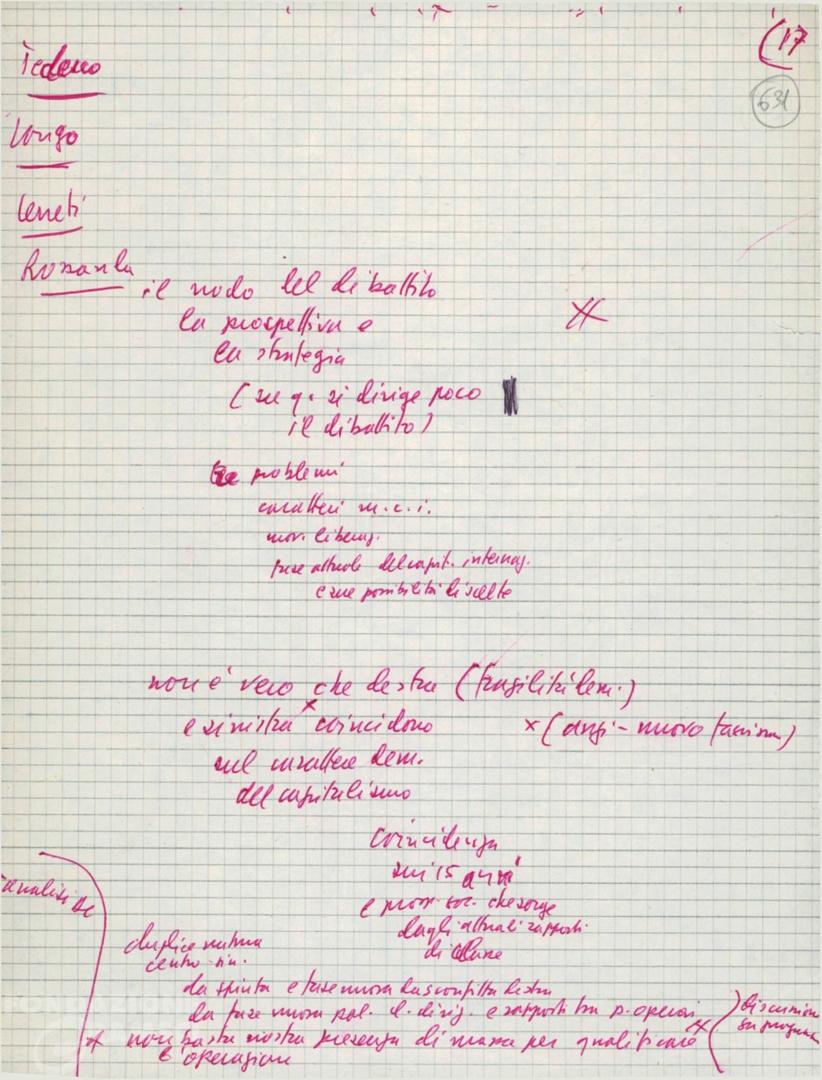 (17
631
Tedesco
Longo
Rossanda
il nodo del dibattito
la prospettiva e
la strategia
(su q. si dirige poco
il dibattito)
problemi
caratteri m.c.i.
mov. liberaz.
fase attuale del capit. internaz.
e sue possibilità di scelte
non è vero che destra (fragilità dem.)
e sinistra x coincidono x (anzi - nuovo fascism)
sul carattere dem.
del capitalismo
coincidenza
sui 15 anni
e pross. soc. che sorge
dagli attuali rapporti
di classe
analisi
duplice natura
centro-sin.
da spinta e fase nuova da sconfitta destra
da fase nuova pol. cl. dirig. e rapporti tra p. operai
non basta nostra presenza di massa per qualificare
l'operazione
discussion
su programm